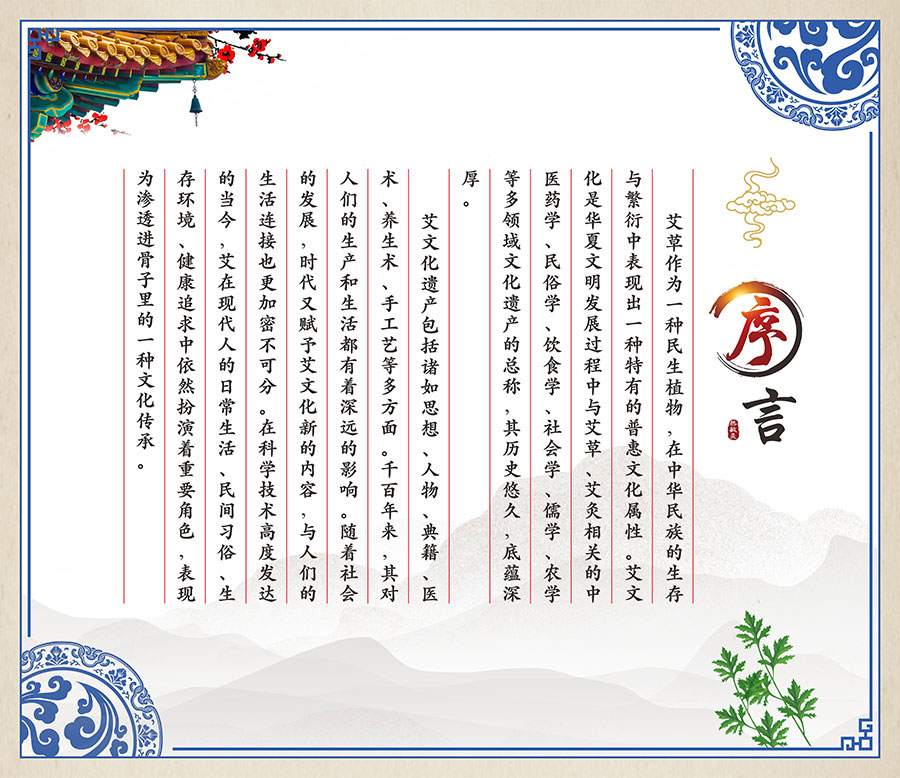 序言
艾草作为一种民生植物，在中华民族的生存
与繁衍中表现出一种特有的普惠文化属性。艾文
化是华夏文明发展过程中与艾草、艾灸相关的中
医药学、民俗学、饮食学、社会学、儒学、农学
等多领域文化遗产的总称，其历史悠久，底蕴深
厚。
艾文化遗产包括诸如思想、人物、典籍、医
术、养生术、手工艺等多方面。千百年来，其对
人们的生产和生活都有着深远的影响。随着社会
的发展，时代又赋予艾文化新的内容，与人们的
生活连接也更加密不可分。在科学技术高度发达
的当今，艾在现代人的日常生活、民间习俗、生
存环境、健康追求中依然扮演着重要角色，表现
为渗透进骨子里的一种文化传承。